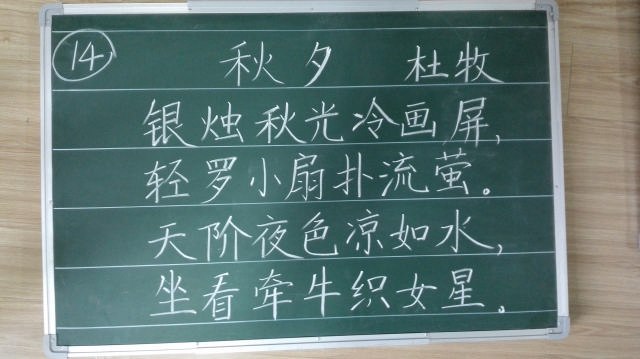 14 秋夕 杜牧
银烛秋光冷画屏,
轻罗小扇扑流萤。
天阶夜色凉如水,
坐看牵牛织女星。